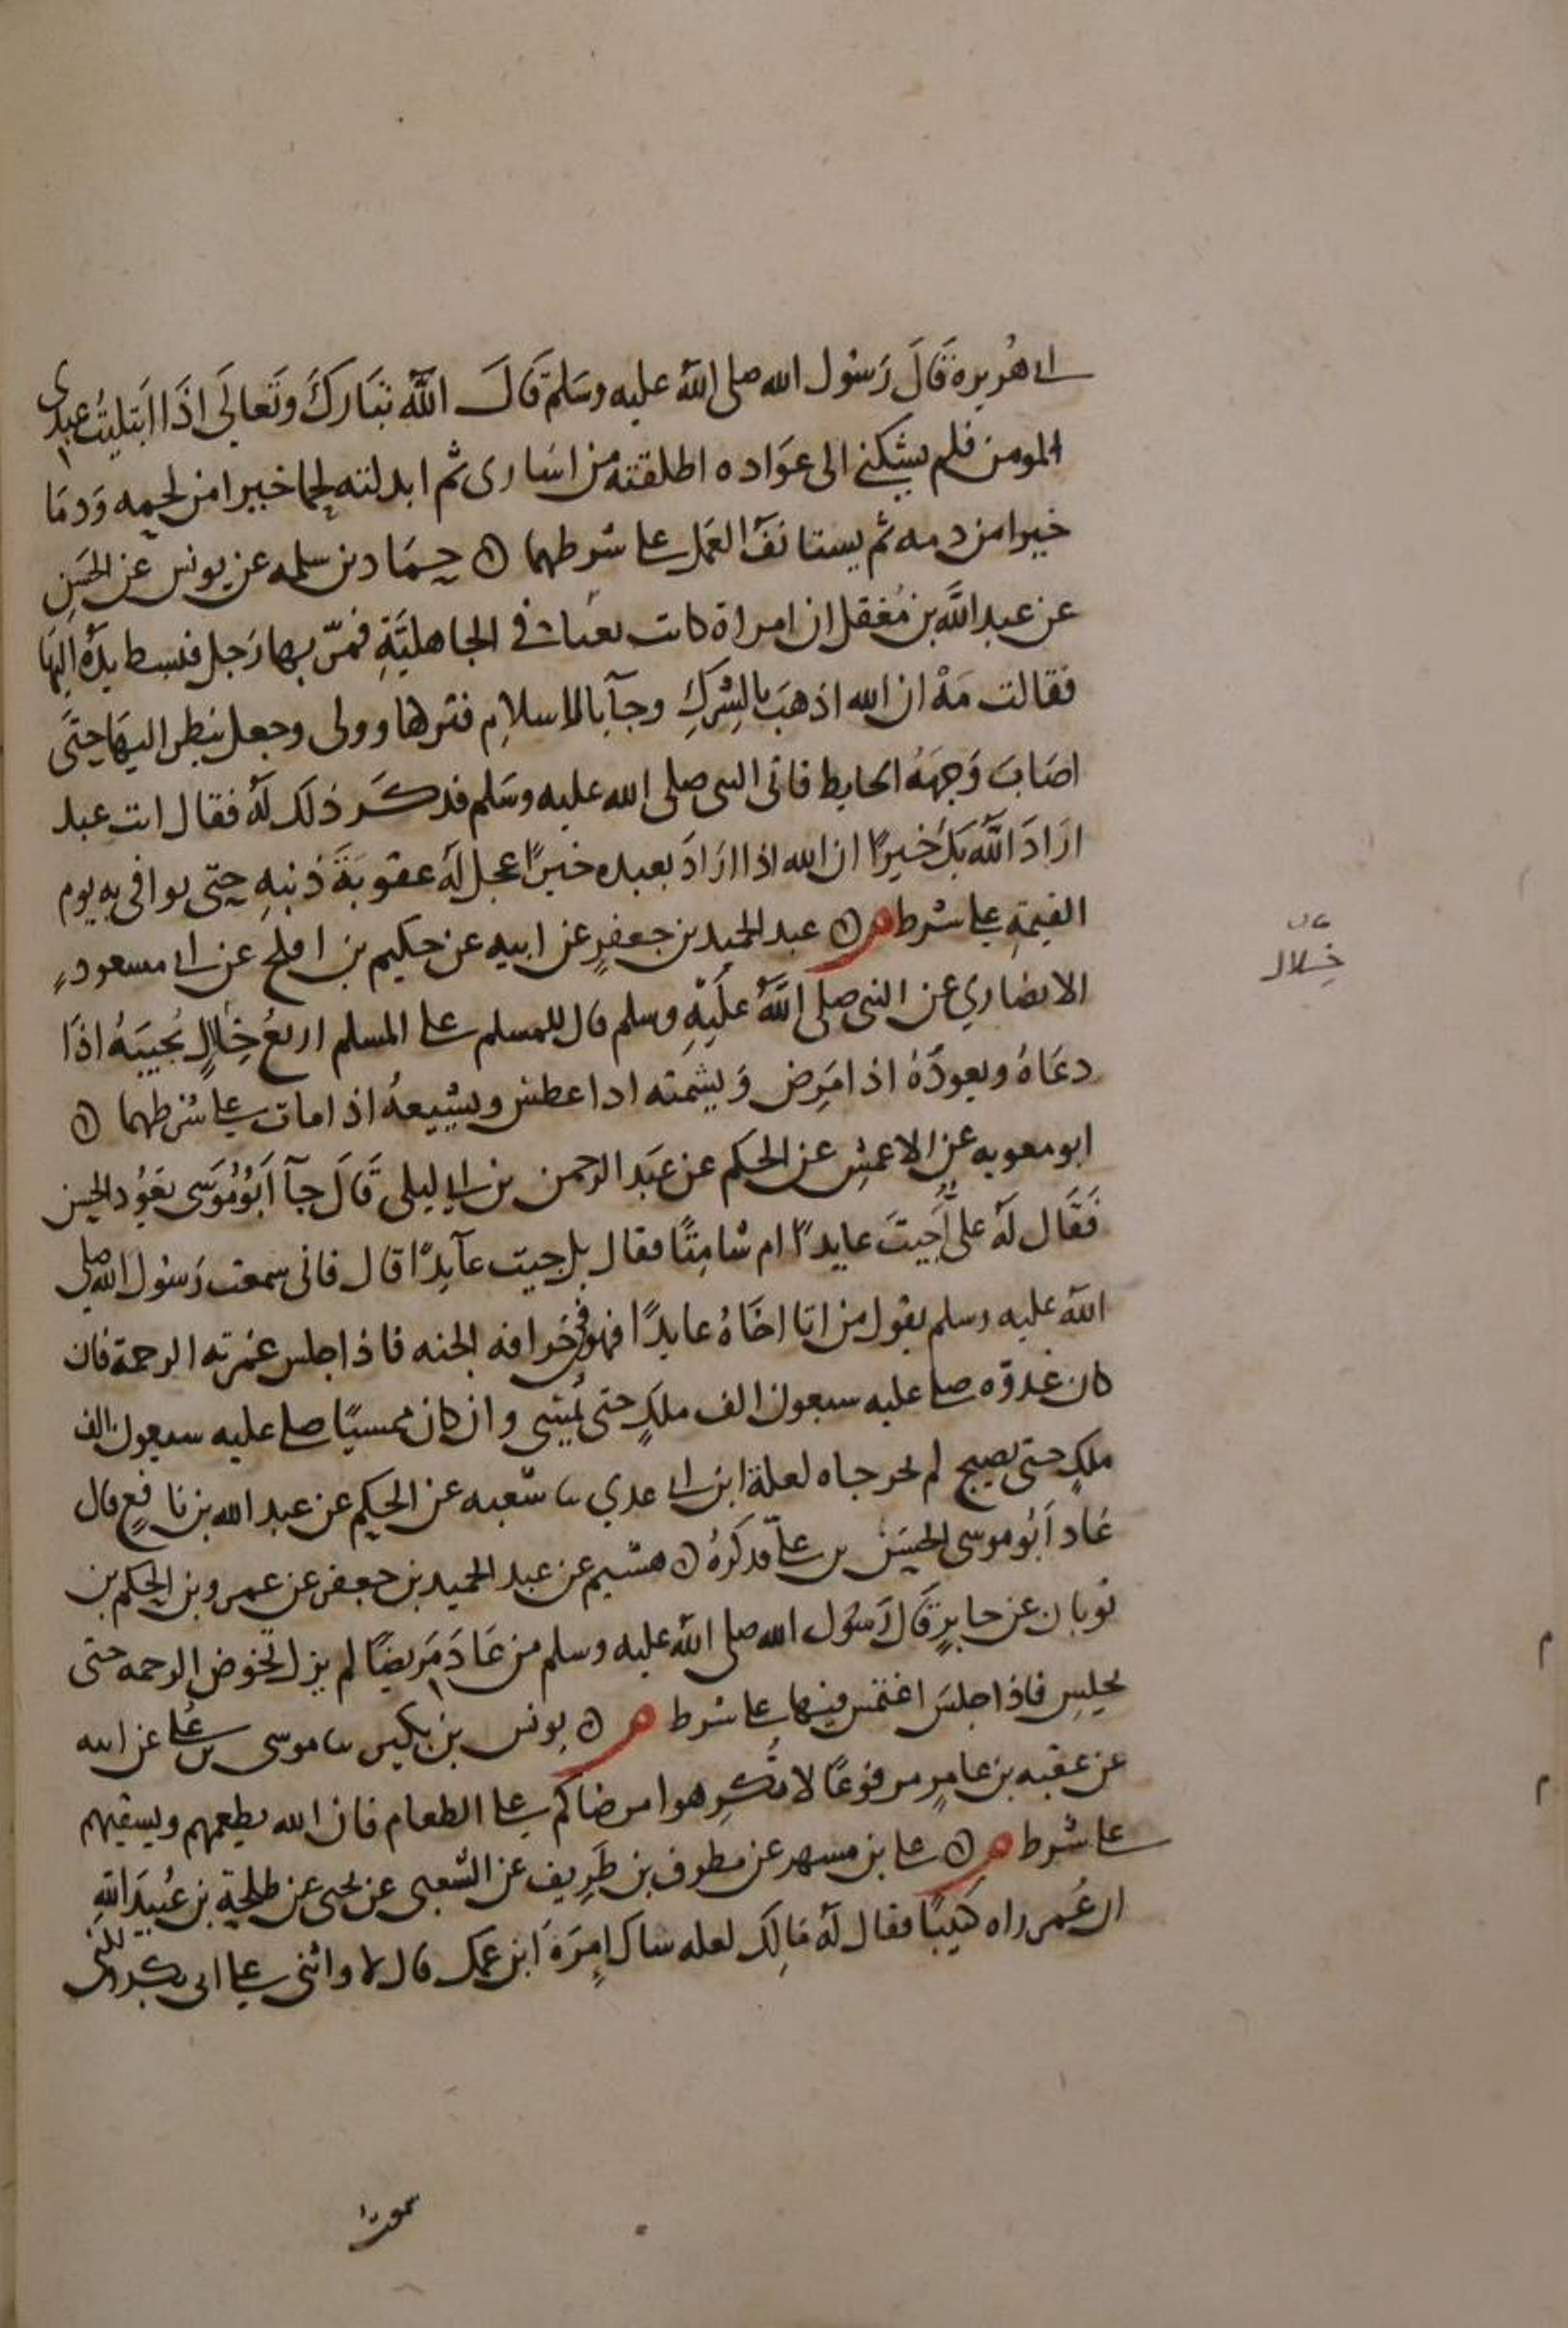 ابى هريرة قَالَ رَسُول الله صلى الله عليه وسَلم قَالَ الله تبَاركَ وتَعالَى اذَا ابتليتُ عبدى
المومن فلم يشكنى الى عوَاده اطلقته من اسَارى ثم ابدلته لحما خيرا من لحمه وَدمَا
خيرا من دمه ثم يستانفَ العَمل على شرطهما حمَاد بن سلمه عن يونس عن الحسَنِ
عن عبد الله بن مُغفل ان امراة كانت بغيا فى الجاهليَّةِ فمرّ بها رَجل فبسط يدَه اليهَا
فقالت مَهْ ان الله اذهبَ بالشِركِ وجآ بالاسلامِ فتركها وولى وجعل ينظر اليهَا حتىَ
اصَابَ وَجهَهُ الحايط فاتى النبى صلى الله عليه وسَلم فذكَر ذلك لهُ فقال انت عبد
ارَادَ الله بكَ خَيرًا ان الله اذا ارَادَ بعبده خيرًا عجل لهُ عقوبَةَ ذنبهِ حتى يوافى به يوم
القيمةِ على شرط م عبد الحميد بن جعفرٍ عن ابيه عن حكيم بن افلح عن ابى مسعودٍ
الانصاري عن النبى صلى اللهُ علَيْهِ وسلم قال للمسلم على المسلم اربعُ خِلالٍ يُجيبَهُ اذَا
دعَاهُ ويعودُهُ اذا مَرِض وَيشمته اذا عطس ويشيعهُ اذا مات على شرطهما
ابو معويه عن الاعمشِ عن الحكم عن عبَد الرحمن بن ابى ليلى قَالَ جآ اَبُو مُوسَى يَعوُد الحسن
فَقَال لهُ على أَجيتَ عايدًا ام شامِتًا فقال بل جيت عآيدًا قال فانى سمعت رَسُول الله صلى
الله عليه وسلم يقول من اتا اخَاهُ عايدًا فهو فى خرافه الجنه فاذا جلس غمرته الرحمة فان
كان غدوّه صلى عليه سبعون الف ملكٍ حتى يُمسى وان كان ممسيًا صلى عليه سبعون الف
ملكٍ حتى يصبح لم يخرجاه لعلة ابن ابى عدي ثنا شعبه عن الحكم عن عبد الله بن نافعٍ قال
عَاد اَبُو موسى الحسَن بن علىّ فذكرهُ هشيم عن عبد الحميد بن جعفر عن عمر بن الحكم بن
ثوبان عن جابرٍ قَالَ رَسُول الله صلى الله عليه وسلم من عَادَ مَريضًا لم يزل يخوض الرحمه حتى
يجلس فاذا جلسَ اغتمس فيها على شرط م يونس بن بكير ثنا موسى بن عُلى عن ابيه
عن عقبه بن عامرٍ مرفوعًا لا تُكرِهوا مرضاكم على الطعام فان الله يطعمهم ويسقيهم
على شرط م على بن مسهر عن مطرف بن طَرِيف عن الشعبى عن يحيى عن طلحة بن عُبيدَ اللهِ
ان عُمر راه كَيبًا فقال لهُ مَالِكَ لعله ساك امرَةَ ابن عمك قال لا واثنى على ابى بكر ولكنى
خلال
م
م
سمعت